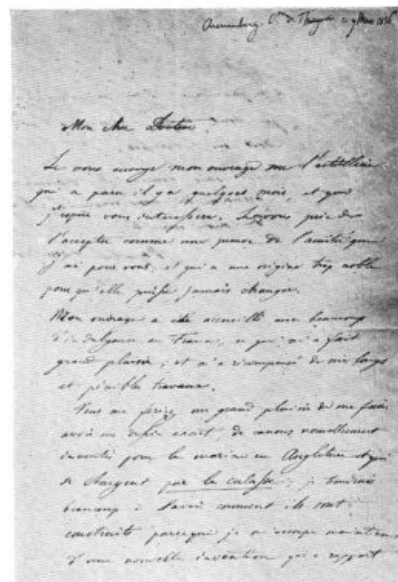 Arenenberg, C.on de Thurgovie ce 9 Mars 1836
Mon cher Docteur,
Je vous envoye mon ouvrage sur l'artillerie
qui a paru il y a quelques mois, et que
j'espère vous intéressera. Je vous prie de
l'accepter comme une preuve de l'amitié que
j'ai pour vous, et qui a une origine trop noble
pour qu'elle puisse jamais changer.
Mon ouvrage a été accueilli avec beaucoup
d'indulgence en France, ce qui m'a fait
grand plaisir, et m'a récompensé de mes longs
et pénibles travaux.
Vous me feriez un grand plaisir de me faire
avoir un dessin exact, de canons nouvellement
inventés pour la marine en Angleterre et qui
se chargent par la culasse; je tiendrais
beaucoup à savoir comment ils sont
construits parceque je m'occupe maintenant
d'une nouvelle invention qui a rapport